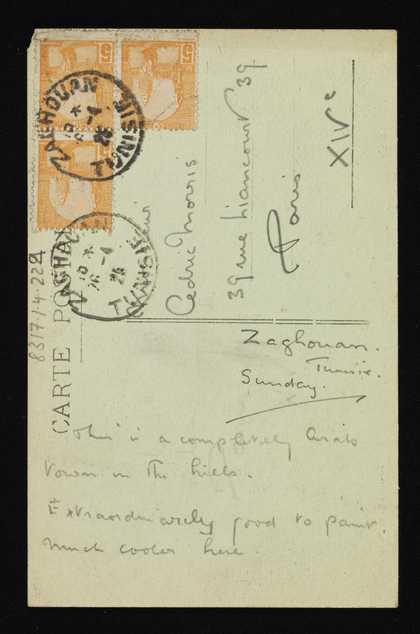 5
5
5
ZAGHOUAN
TUNISIE
26 -4
26
ZAGHOUAN
TUNISIE
26 -4
26
CARTE POSTALE
8317.1.4.224
Cedric Morris
39 rue Liancourt 39
Paris
XIVe
Zaghouan.
Tunisie.
Sunday.
This is a completely Arab
town in the hills.
Extraordinarily good to paint.
Much cooler here.